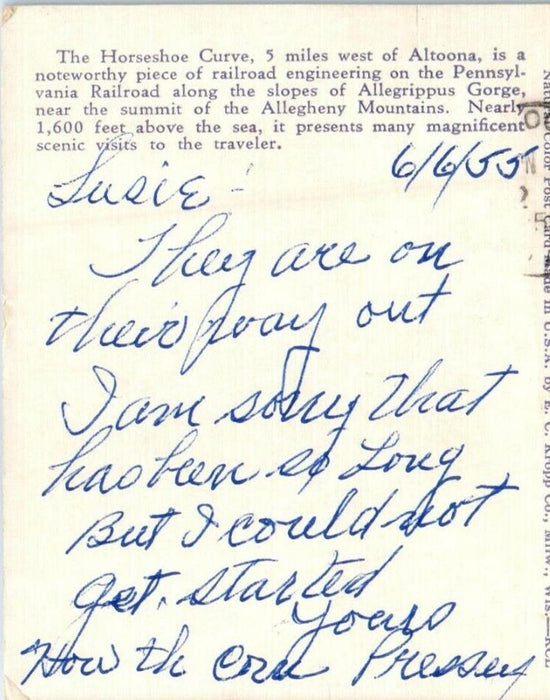 The Horseshoe Curve, 5 miles west of Altoona, is a
noteworthy piece of railroad engineering on the Pennsyl-
vania Railroad along the slopes of Allegrippus Gorge,
near the summit of the Allegheny Mountains. Nearly
1,600 feet above the sea, it presents many magnificent
scenic visits to the traveler.
6/6/55
Susie!
They are on
their way out
I am sorry that
has been so Long
But I could not
get. started
Yours
How th corn Pressey